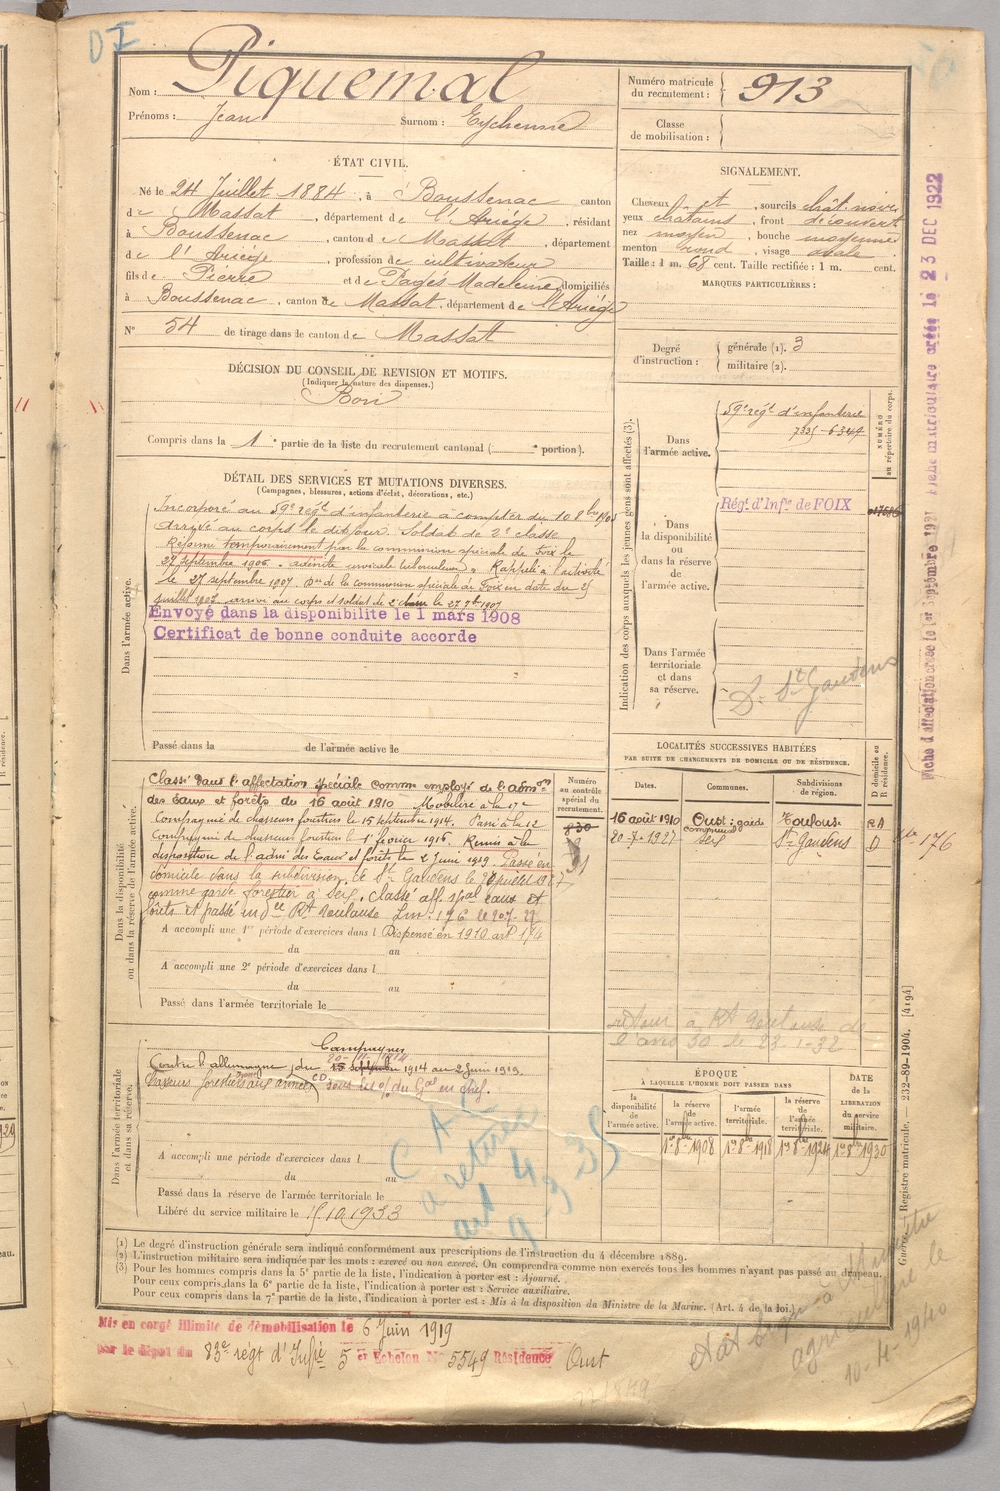 DI
Nom : Piquemal
Prénoms : Jean Surnom : Eychenne
Numéro matricule du recrutement : 913
Classe de mobilisation :
ÉTAT CIVIL.
Né le 24 Juillet 1884, à Boussenac canton
de Massat, département de l'Ariège, résidant
à Boussenac, canton de Massat, département
de l'Ariège, profession de cultivateur
fils de Pierre et de Pagés Madeleine domiciliés
à Boussenac, canton de Massat, département de l'Ariège
N° 54 de tirage dans le canton de Massat
SIGNALEMENT.
Cheveux et, sourcils chât. noirs
yeux châtains, front découvert
nez moyen, bouche moyenne
menton rond, visage ovale
Taille : 1 m. 68 cent. Taille rectifiée : 1 m. cent.
MARQUES PARTICULIÈRES :
Degré d'instruction : générale (1). 3
militaire (2).
DÉCISION DU CONSEIL DE REVISION ET MOTIFS.
(Indiquer la nature des dispenses.)
Bon
Compris dans la 1e partie de la liste du recrutement cantonal ( e portion).
DÉTAIL DES SERVICES ET MUTATIONS DIVERSES.
(Campagnes, blessures, actions d'éclat, décorations, etc.)
Dans l'armée active.
Incorporé au 59e régt d'infanterie à compter du 10 8bre 1905
Arrivé au corps le dit jour. Soldat de 2e classe
Réformé temporairement par la commission spéciale de Foix le
27 septembre 1906. adénite cervicale tuberculeuse. Rappelé à l'activité
le 27 septembre 1907. Don de la commission spéciale de Foix en date du 25
juillet 1907 arrivé au corps et soldat de 2e classe le 27 7bre 1907
Envoyé dans la disponibilite le 1 mars 1908
Certificat de bonne conduite accorde
Passé dans la de l'armée active le
Indication des corps auxquels les jeunes gens sont affectés (3).
Dans l'armée active.
59e régt d'infanterie
7335 - 6349
NUMÉRO au répertoire du corps.
Dans la disponibilité ou dans la réserve de l'armée active.
Régt d'Infie de FOIX
Dans l'armée territoriale et dans sa réserve.
D. St Gaudens
Fiche d'affectation créée le 1er Septembre 1921 Fiche matriculaire créée le 23 DEC 1922
Dans la disponibilité ou dans la réserve de l'armée active.
Classé dans l'affectation spéciale comme employé de l'admon
des Eaux et forêts du 16 août 1910 Mobilisé à la 17e
Compagnie de chasseurs forestiers le 15 septembre 1914. Passé à la 12
Compagnie de chasseurs forestiers le 1er février 1916. Remis à la
disposition de l'admon des Eaux et forêts le 2 Juin 1919. Passé en
domicile dans la subdivision de St Gaudens le 20 juillet 1927
comme garde forestier à Seix. Classé aff. spal eaux et
forêts et passé en dce Rt Toulouse Lm : 176 le 20-7-27
A accompli une 1re période d'exercices dans l Dispensé en 1910 art 174
du au
A accompli une 2e période d'exercices dans l
du au
Passé dans l'armée territoriale le
Numéro au contrôle spécial du recrutement.
830
LOCALITÉS SUCCESSIVES HABITÉES
PAR SUITE DE CHANGEMENTS DE DOMICILE OU DE RÉSIDENCE.
Dates. Communes. Subdivisions de région. D domicile ou R résidence.
16 août 1910 Oust : garde communal Toulouse RA
20-7-1927 Seix St Gaudens D
176
retour à Rt Toulouse de
l'ano 30 le 23-1-32
Dans l'armée territoriale et dans sa réserve.
Campagnes
20-11-1914
Contre l'allemagne, du 15 septembre 1914 au 2 Juin 1919.
Chasseurs forestiers aux armées CD sous les o/ du Gal en chef.
A accompli une période d'exercices dans l
du au
Passé dans la réserve de l'armée territoriale le
Libéré du service militaire le 15.10.1933
ÉPOQUE
À LAQUELLE L'HOMME DOIT PASSER DANS
la disponibilité de l'armée active. la réserve de l'armée active. l'armée territoriale. la réserve de l'armée territoriale. DATE de la LIBÉRATION du service militaire.
1er 8bre 1908 1er 8bre 1918 1er 8bre 1924 1er 8bre 1930
(1) Le degré d'instruction générale sera indiqué conformément aux prescriptions de l'instruction du 4 décembre 1889.
(2) L'instruction militaire sera indiquée par les mots : exercé ou non exercé. On comprendra comme non exercés tous les hommes n'ayant pas passé au drapeau.
(3) Pour les hommes compris dans la 5e partie de la liste, l'indication à porter est : Ajourné.
Pour ceux compris dans la 6e partie de la liste, l'indication à porter est : Service auxiliaire.
Pour ceux compris dans la 7e partie de la liste, l'indication à porter est : Mis à la disposition du Ministre de la Marine. (Art. 4 de la loi.)
Guerre. — Registre matricule. — 232-89-1904. [4194]
Mis en congé illimité de démobilisation le 6 Juin 1919
par le dépôt du 83e régt d'Infie 5er Echelon No 5549 Résidence Oust
agriculture le
10-4-1940